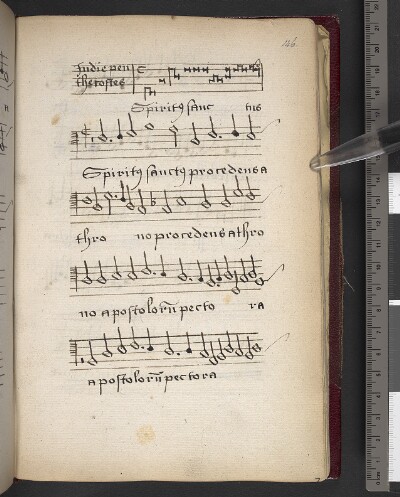 146.
In die pen
thecostes
Spiritus sanc tus
Spiritus sanctus procedens a
thro no procedens a thro
no apostolorũ pecto ra
apostolorũ pectora